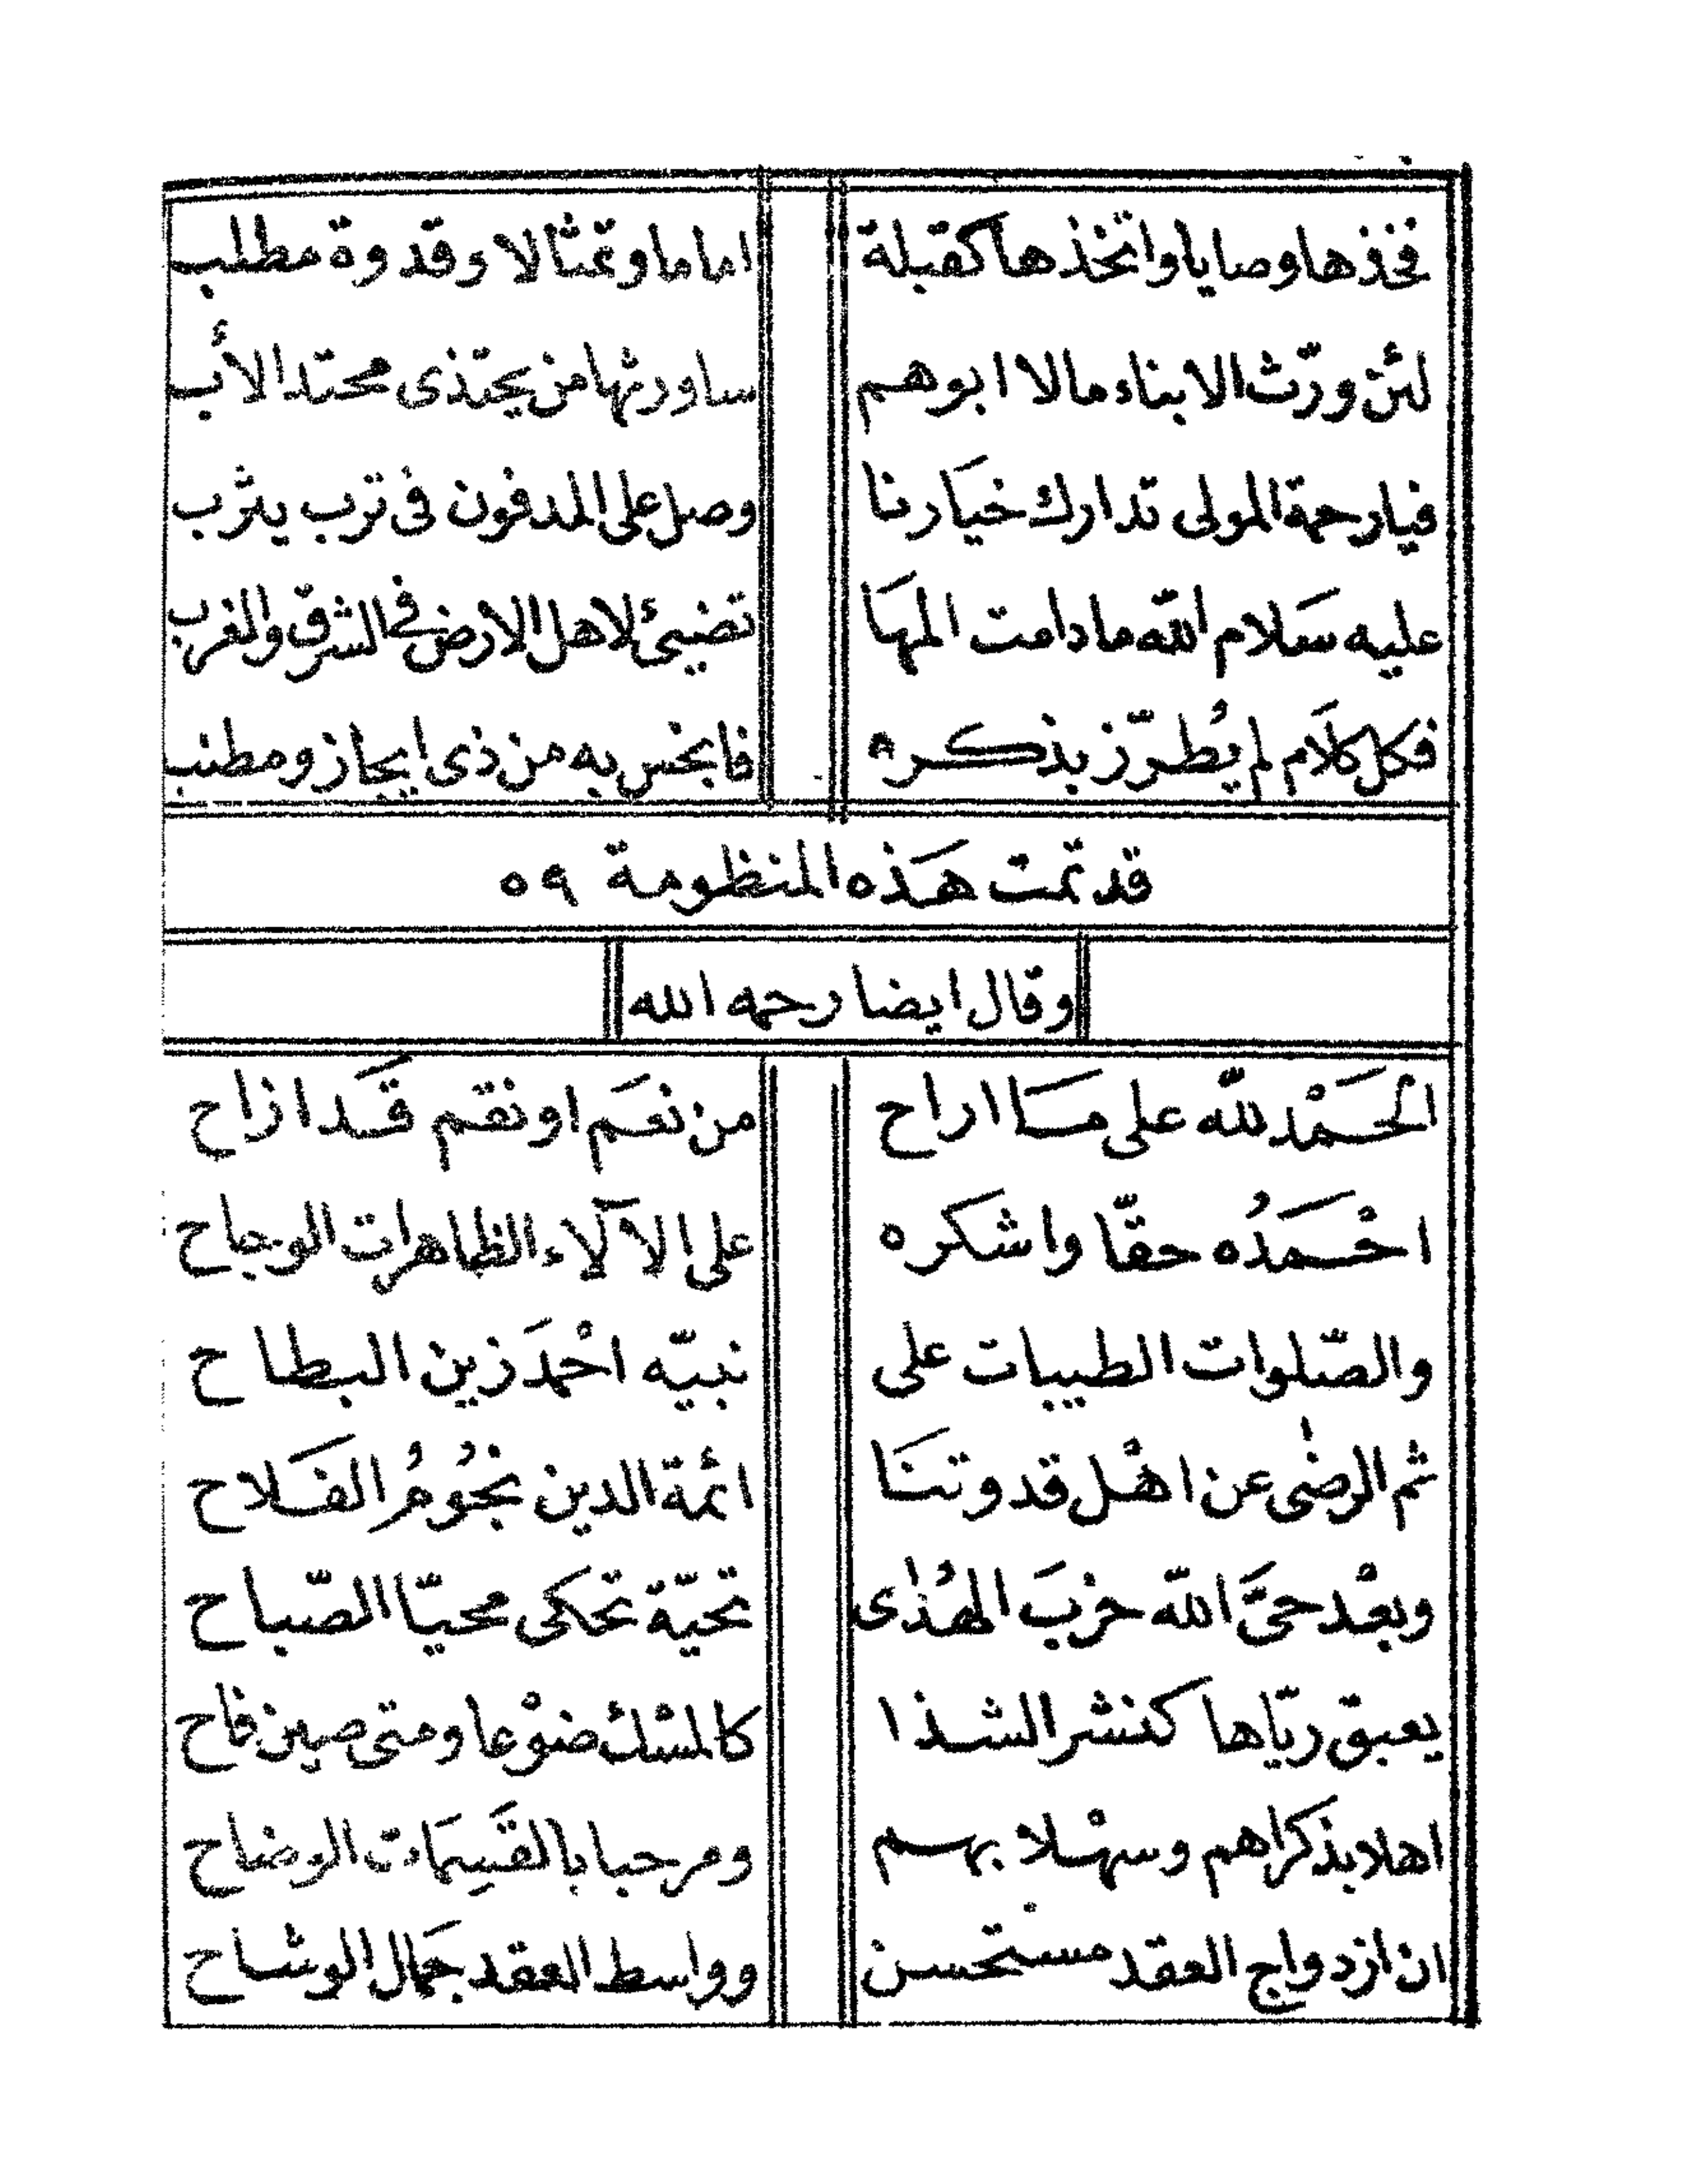 فخذها وصايا واتخذها كقبلة اماما وتمثالا وقدوة مطلب
لئن ورّث الابناء مالا ابوهم ساورثها من يحتذى محتد الأب
فيارحمة المولى تدارك خيَارنا وصل على المدفون فى ترب يثرب
عليه سَلام اللّه مادامت المهَا تضيئ لاهل الارض في الشرق والمغرب
فكل كلَام لم يُطرّز بذكره فابخس به من ذى ايجاز ومطنب
قد تمت هَذه المنظومة ٥٩
وقال ايضا رحمه الله
الحَمْد للّه على مَا اراح من نعَم او نقم قَد ازاح
احْمَدُه حقّا واشكره على الآلاء الظاهرات الوجاح
والصّلوات الطيبات على نبيّه احْمدَ زين البطاح
ثم الرضى عن اهْل قدوتنَا ائمة الدين نجُومُ الفَلاح
وبعْد حىَّ اللّه حزبَ الهُدٰى تحيّة تحكى محيّا الصّباح
يعبق ريّاها كنشر الشذا كالمسْك ضوْعا ومتى صين فاح
اهلا بذكراهم وسهْلا بهم ومرحبا بالقَسِمَات الوضاح
ان ازدواج العقد مستحسن وواسط العقد جمَال الوشاح